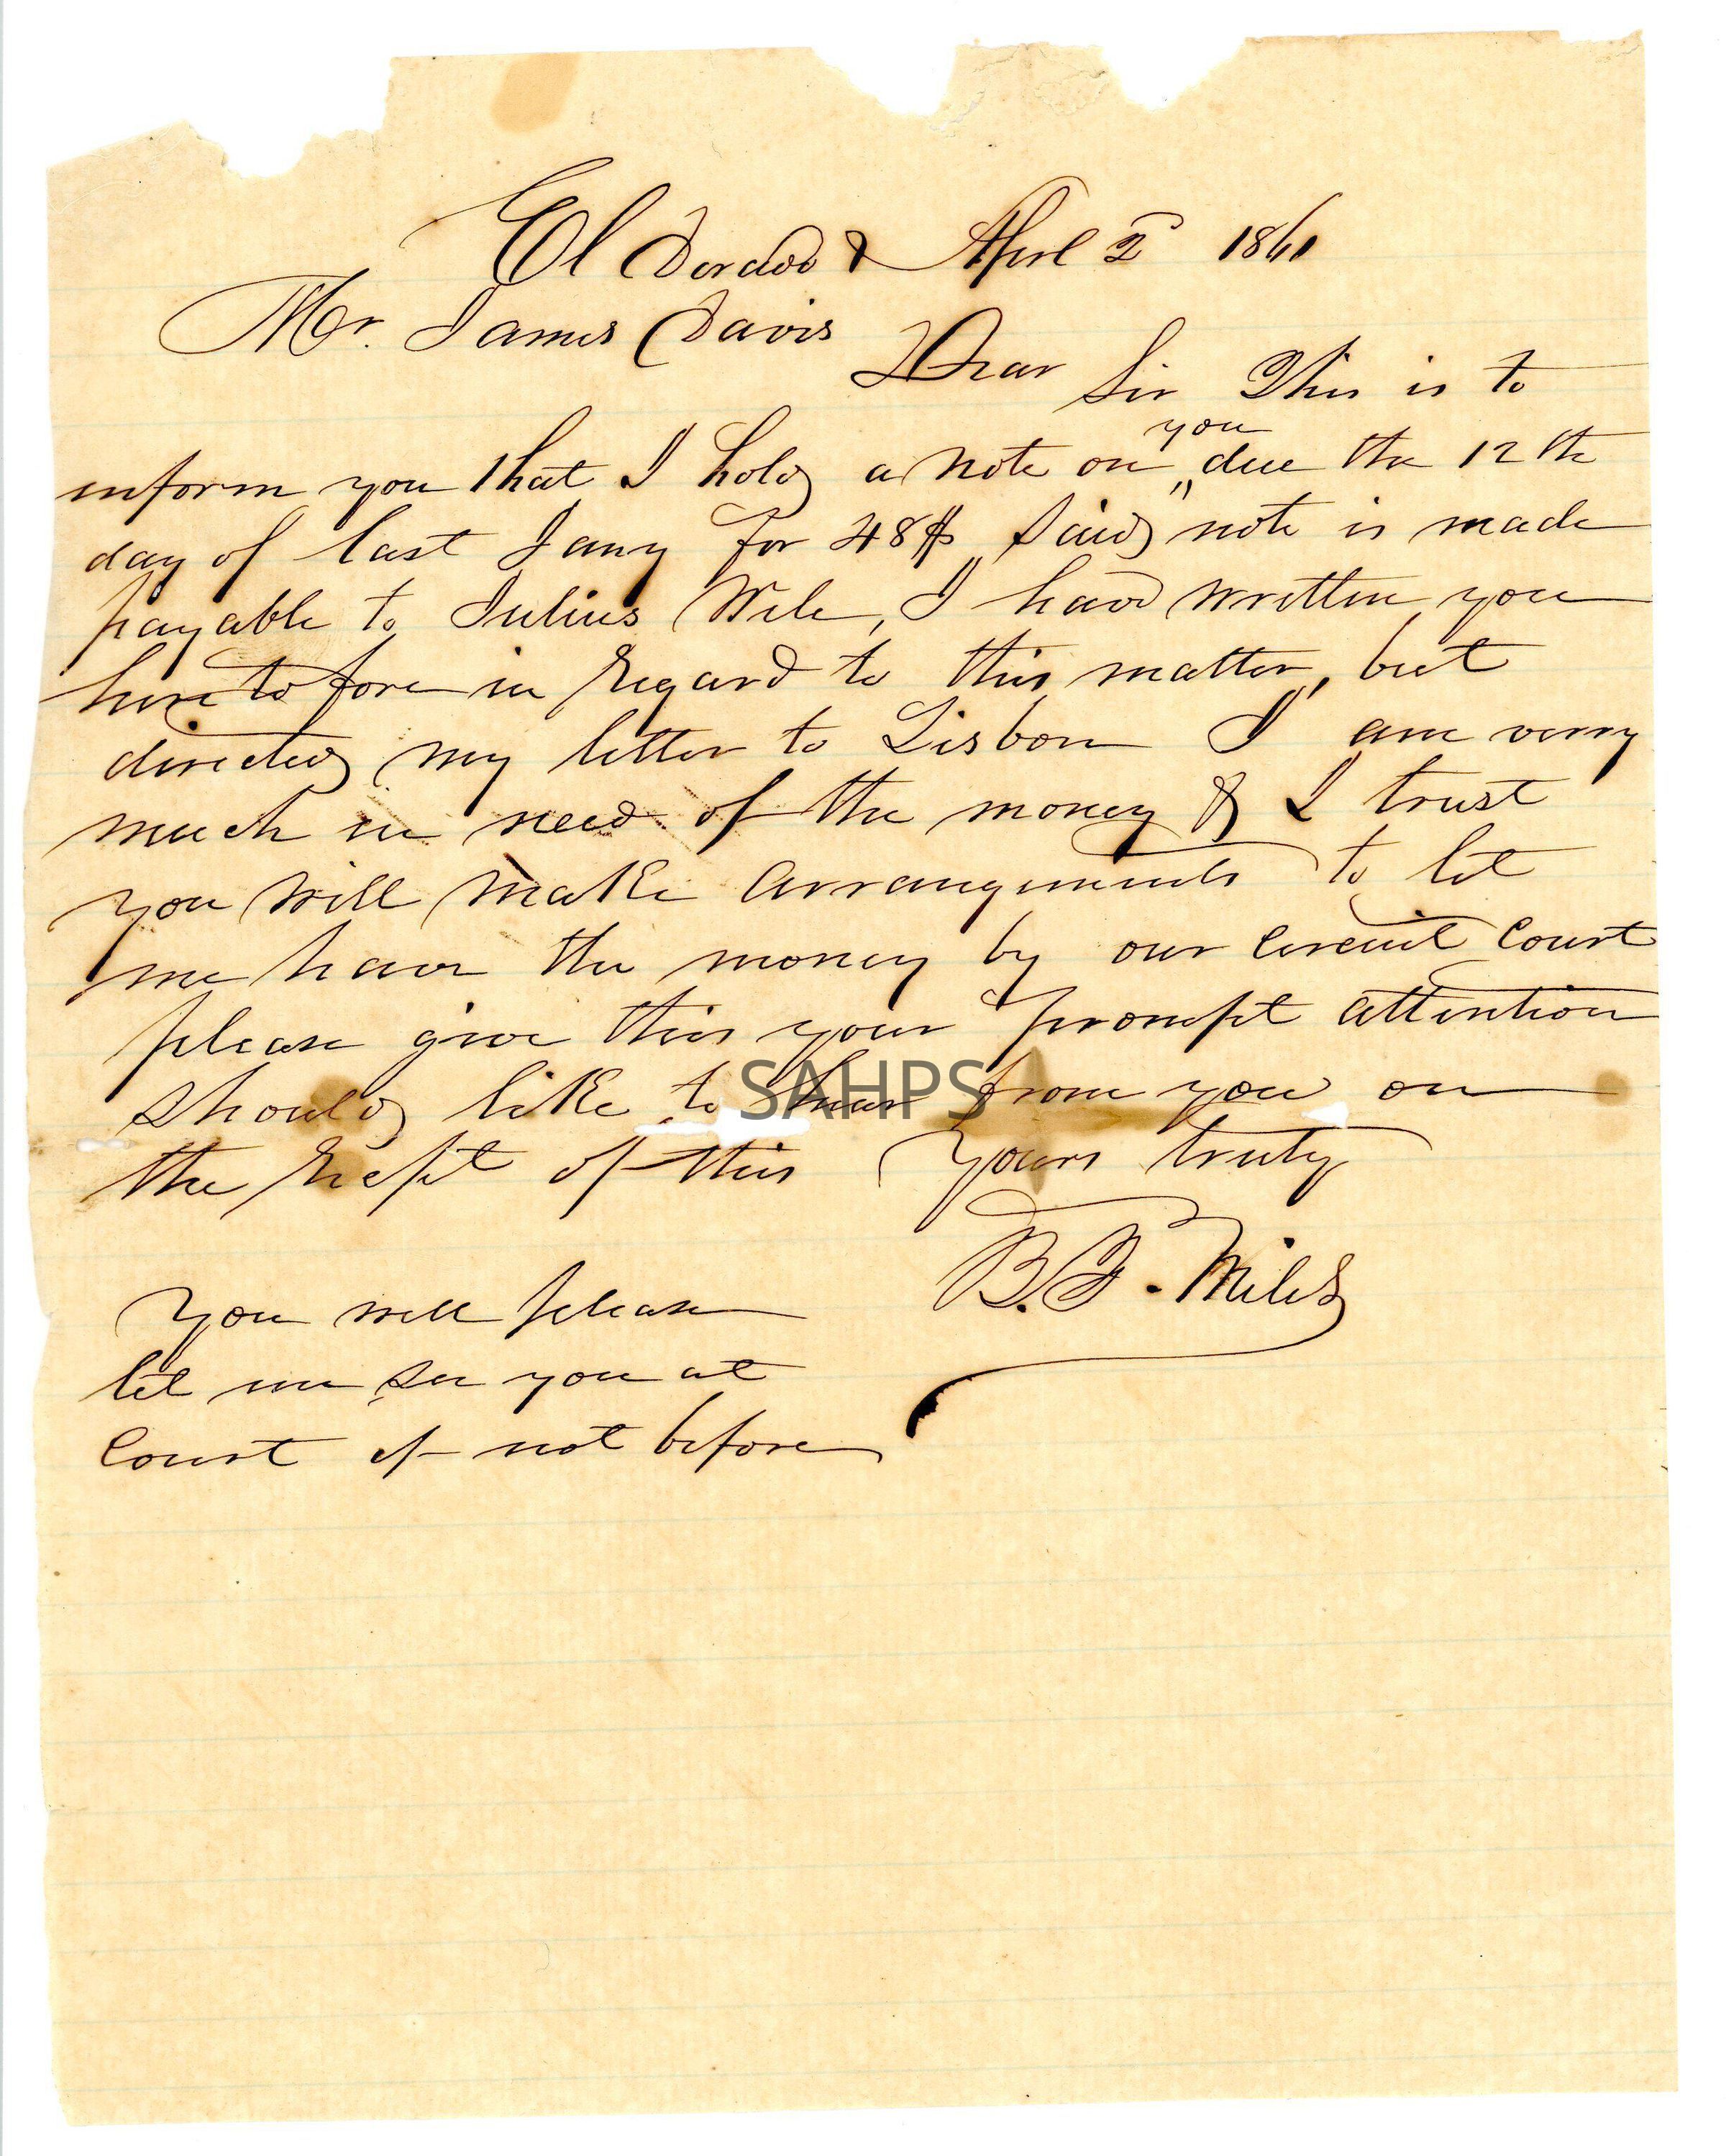 El Dorado & April 2d 1861
Mr. James Davis
Dear Sir This is to
inform you that I hold a note on you due the 12th
day of last Jany for 48$ Said note is made
payable to Julius Wile, I have written you
here to fore in regard to this matter, but
directed my letter to Lisbon I am verry
much in need of the money & I trust
you will make arrangements to let
me have the money by our Circuit Court
please give this your prompt attention
should like to hear from you on
the recpt of this Yours truly
B. F. Miles
You will please
let me see you at
Court if not before
SAHPS